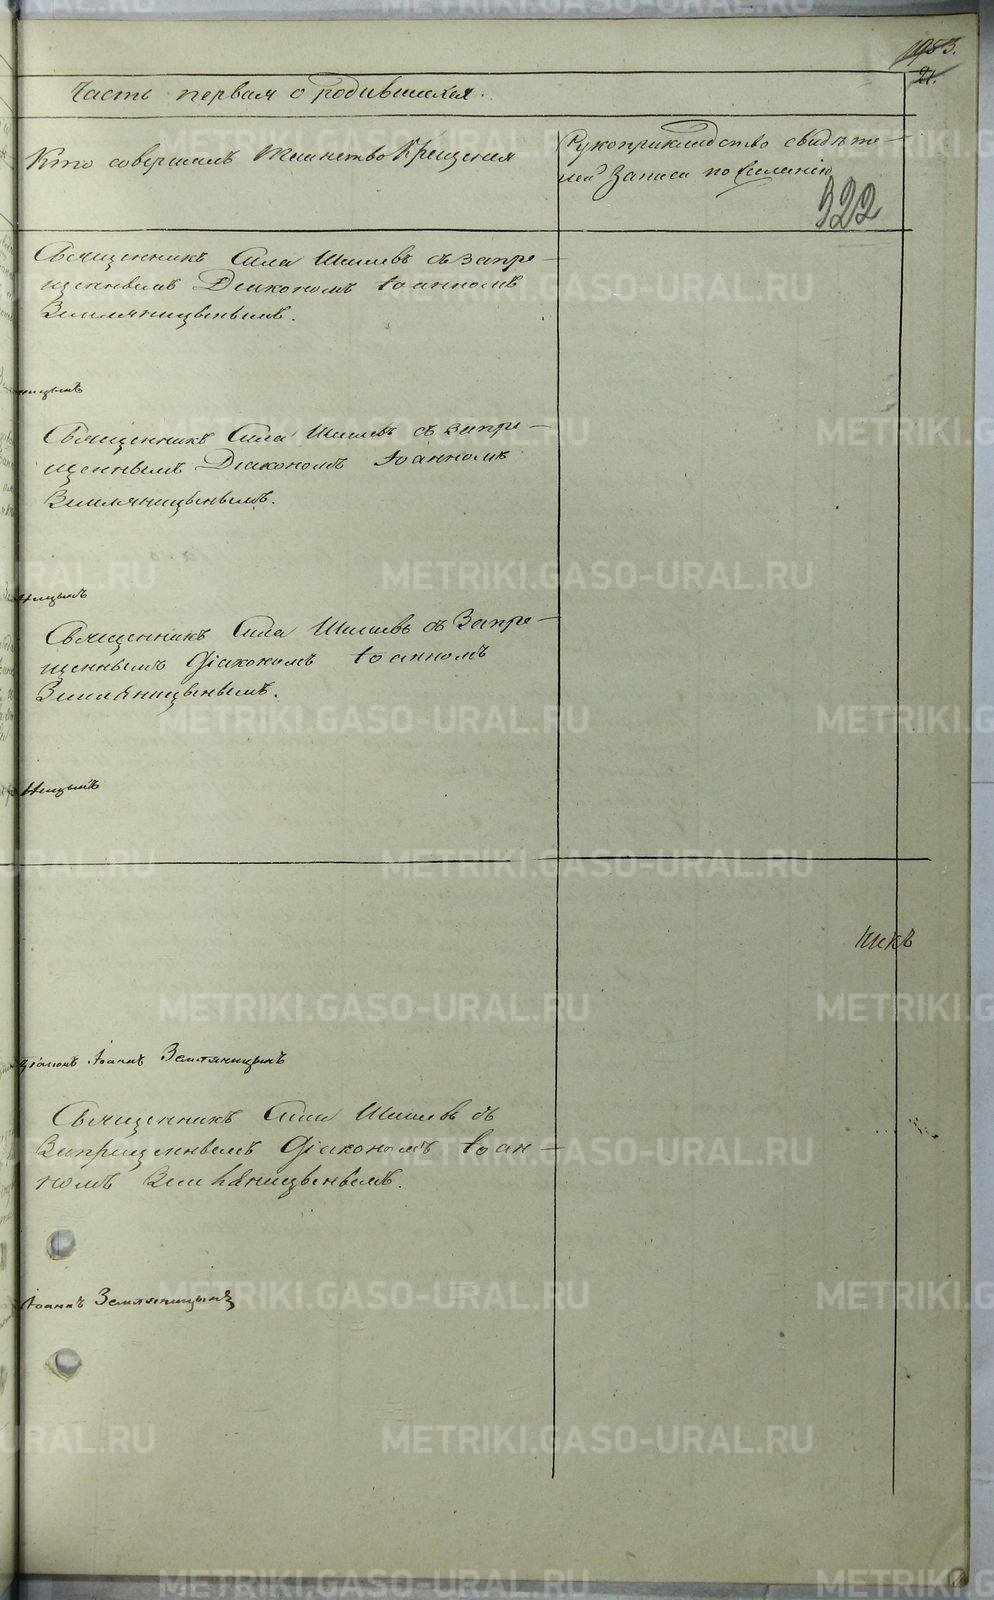 1983.
21.
Часть первая о родившихся.
Кто совершалъ Таинство Крещения
Рукоприкладство свидѣте-
лей Записи по желанію
322
Священникъ Сила Шишевъ съ запре-
щеннымъ Діакономъ Іоанномъ
Земляницынымъ.
ницынъ
Священникъ Сила Шишевъ съ запре-
щеннымъ Діакономъ Іоанномъ
Земляницынымъ.
ницынъ
Священникъ Сила Шишевъ съ Запре-
щеннымъ Діакономъ Іоанномъ
Земляницынымъ.
ницынъ
никъ
Діаконъ Іоаннъ Земляницынъ
Священникъ Сила Шишевъ съ
Запрещеннымъ Діакономъ Іоан-
номъ Земляницынымъ.
Іоаннъ Земляницынъ
METRIKI.GASO-URAL.RU